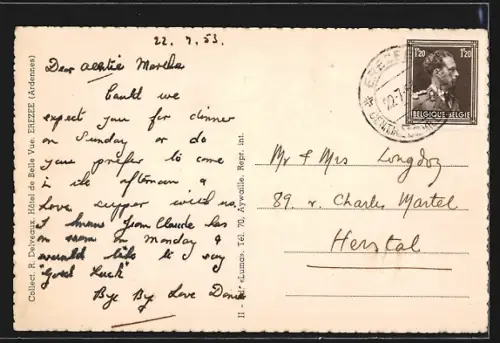 22.7.53.
Dear Martha
Could we
expect you for dinner
on Sunday or do
you prefer to come
in the afternoon &
have supper with us.
I know Jean Claude has
on Monday &
would like to say
"Good Luck"
Bye Bye Love
Mr & Mrs Longdoz
89. r. Charles Martel
Herstal
1F20 1F20
BELGIQUE BELGIE
EREZEE
22-7
Collect. R. Delveaux, Hôtel de Belle Vue, EREZEE (Ardennes)
II - Edit. «Luma», Tél. 70, Aywaille. Repr. int.